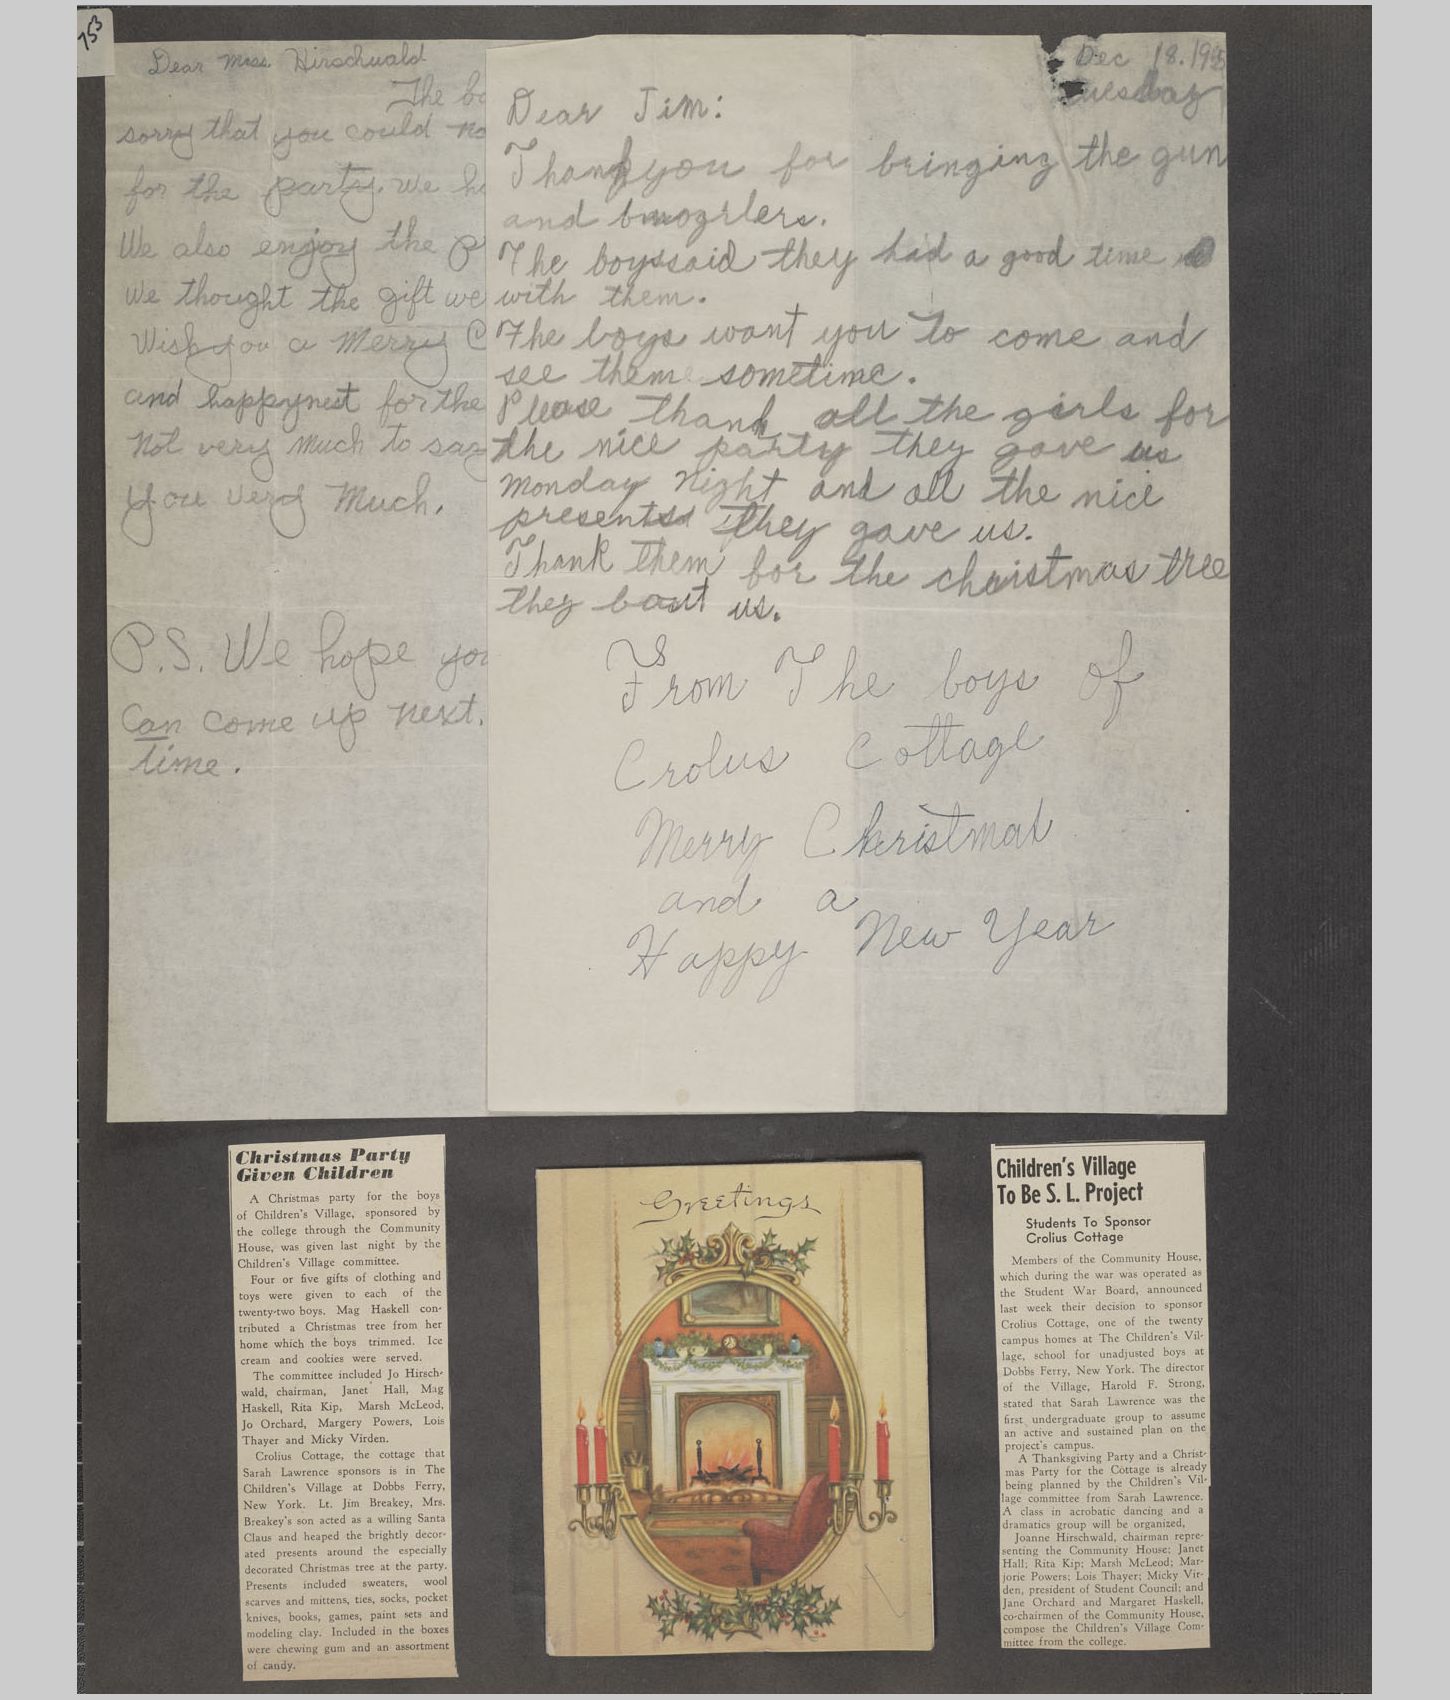 753
Dear Miss. Hirschwald
The bo
sorry that you could no
for the party. we ha
We also enjoy the p
We thought the gift we
Wish you a Merry C
and happynest for the
Not very much to say
you very much.
P.S. We hope you
Can come up next.
time.
Dec 18.195
Tuesday
Dear Jim:
Thank you for bringing the gun
and
The boys said they had a good time
with them.
The boys want you to come and
see them sometime.
Please thank all the girls for
the nice party they gave us
Monday Night and all the nice
presents they gave us.
Thank them for the christmas tree
they bout us.
From The boys of
Crolus Cottage
Merry Christmas
and a
Happy New Year
Christmas Party
Given Children
A Christmas party for the boys
of Children's Village, sponsored by
the college through the Community
House, was given last night by the
Children's Village committee.
Four or five gifts of clothing and
toys were given to each of the
twenty-two boys. Mag Haskell con-
tributed a Christmas tree from her
home which the boys trimmed. Ice
cream and cookies were served.
The committee included Jo Hirsch-
wald, chairman, Janet Hall, Mag
Haskell, Rita Kip, Marsh McLeod,
Jo Orchard, Margery Powers, Lois
Thayer and Micky Virden.
Crolius Cottage, the cottage that
Sarah Lawrence sponsors is in The
Children's Village at Dobbs Ferry,
New York. Lt. Jim Breakey, Mrs.
Breakey's son acted as a willing Santa
Claus and heaped the brightly decor-
ated presents around the especially
decorated Christmas tree at the party.
Presents included sweaters, wool
scarves and mittens, ties, socks, pocket
knives, books, games, paint sets and
modeling clay. Included in the boxes
were chewing gum and an assortment
of candy.
Greetings
Children's Village
To Be S. L. Project
Students To Sponsor
Crolius Cottage
Members of the Community House,
which during the war was operated as
the Student War Board, announced
last week their decision to sponsor
Crolius Cottage, one of the twenty
campus homes at The Children's Vil-
lage, school for unadjusted boys at
Dobbs Ferry, New York. The director
of the Village, Harold F. Strong,
stated that Sarah Lawrence was the
first undergraduate group to assume
an active and sustained plan on the
project's campus.
A Thanksgiving Party and a Christ-
mas Party for the Cottage is already
being planned by the Children's Vil-
lage committee from Sarah Lawrence.
A class in acrobatic dancing and a
dramatics group will be organized,
Joanne Hirschwald, chairman repre-
senting the Community House; Janet
Hall; Rita Kip; Marsh McLeod; Mar-
jorie Powers; Lois Thayer; Micky Vir-
den, president of Student Council; and
Jane Orchard and Margaret Haskell,
co-chairmen of the Community House,
compose the Children's Village Com-
mittee from the college.